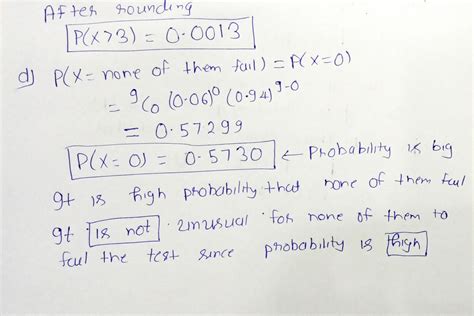 After rounding
P(X>3) = 0.0013
d) P(X= none of them fail) = P(X=0)
= ⁹C₀ (0.06)⁰ (0.94)⁹⁻⁰
= 0.57299
P(X=0) = 0.5730 ← Probability is big
It is high probability that none of them fail
It is not unusual for none of them to
fail the test since probability is high